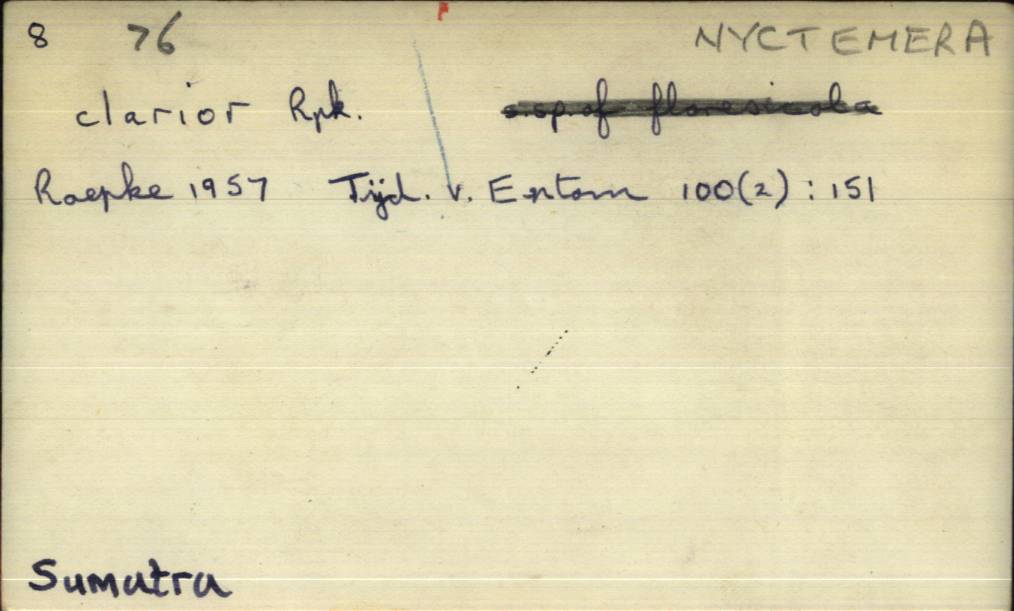 8 76 NYCTEMERA
clarior Rpk. s.sp. of floresicola
Roepke 1957 Tijd. v. Entom 100(2) : 151
Sumatra